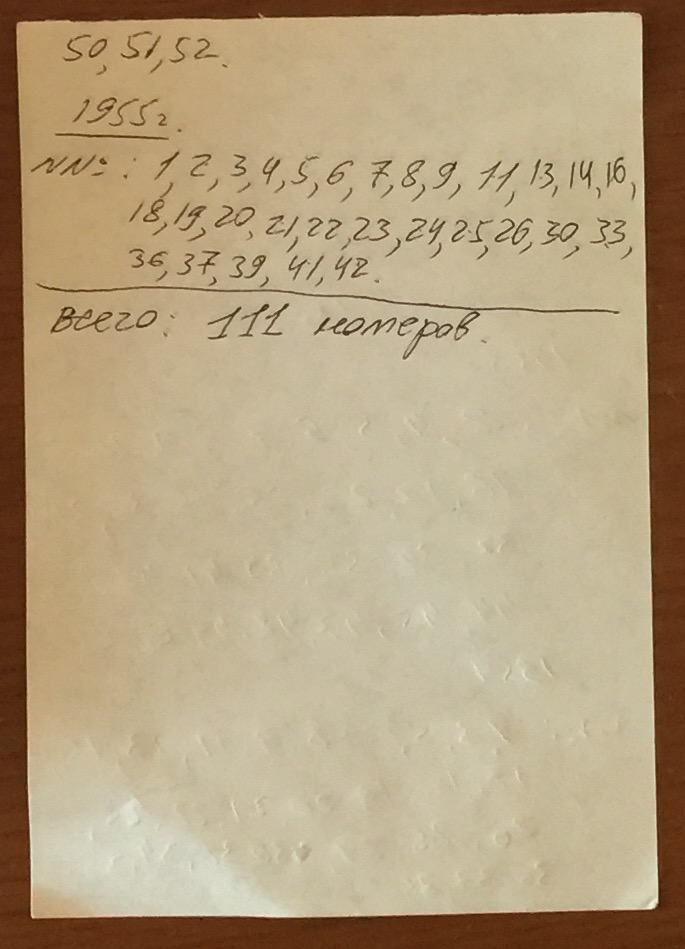 50, 51, 52.
1955г.
NNº: 1, 2, 3, 4, 5, 6, 7, 8, 9, 11, 13, 14, 16,
18, 19, 20, 21, 22, 23, 24, 25, 26, 30, 33,
36, 37, 39, 41, 42.
Всего: 111 номеров.